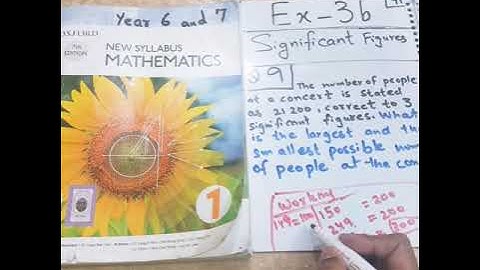 Year 6 and 7
OXFORD
7TH
EDITION
NEW SYLLABUS
MATHEMATICS
1
Ex-3b
Significant Figures
Q 9
The number of people
at a concert is stated
as 21 200, correct to 3
significant figures. What
is the largest and the
smallest possible number
of people at the con
Working
150 = 200
249 = 200
200